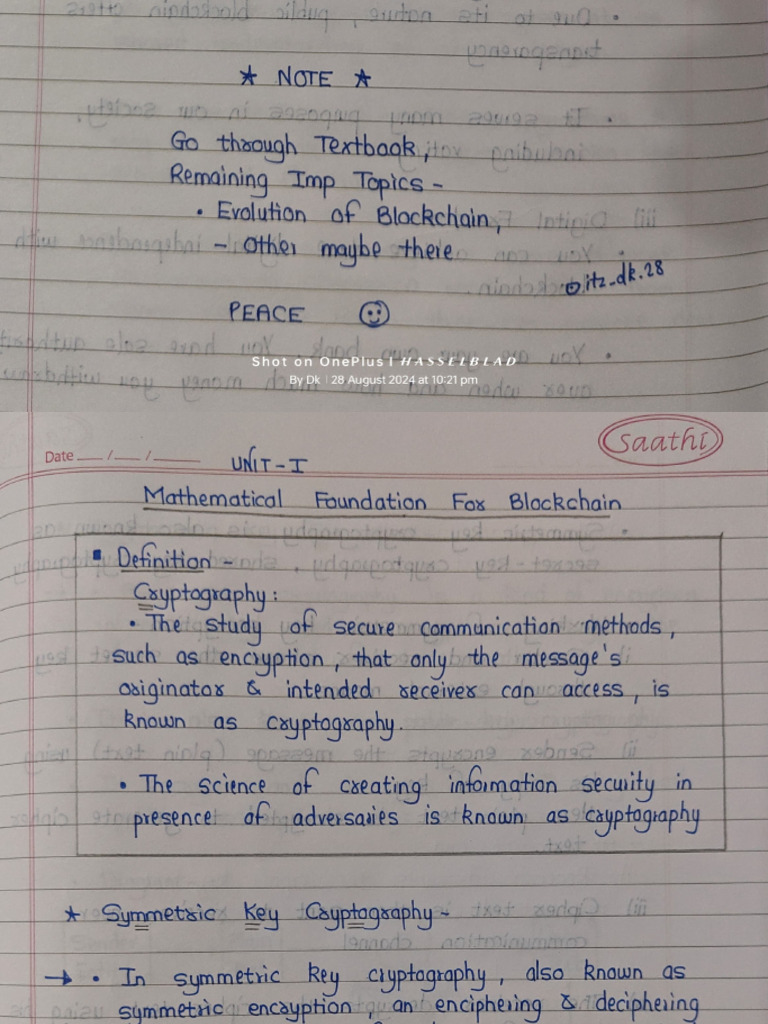 ★ NOTE ★
Go through Textbook,
Remaining Imp Topics -
• Evolution of Blockchain,
- Other maybe there
itz_dk.28
PEACE
Shot on OnePlus | HASSELBLAD
By Dk | 28 August 2024 at 10:21 pm
saathi
Date __/__/____ UNIT-I
Mathematical Foundation For Blockchain
▪ Definition -
Cryptography:
• The study of secure communication methods,
such as encryption, that only the message's
originator & intended receiver can access, is
known as cryptography.
• The science of creating information security in
presence of adversaries is known as cryptography
★ Symmetric Key Cryptography -
→ • In symmetric key cryptography, also known as
symmetric encryption, an enciphering & deciphering